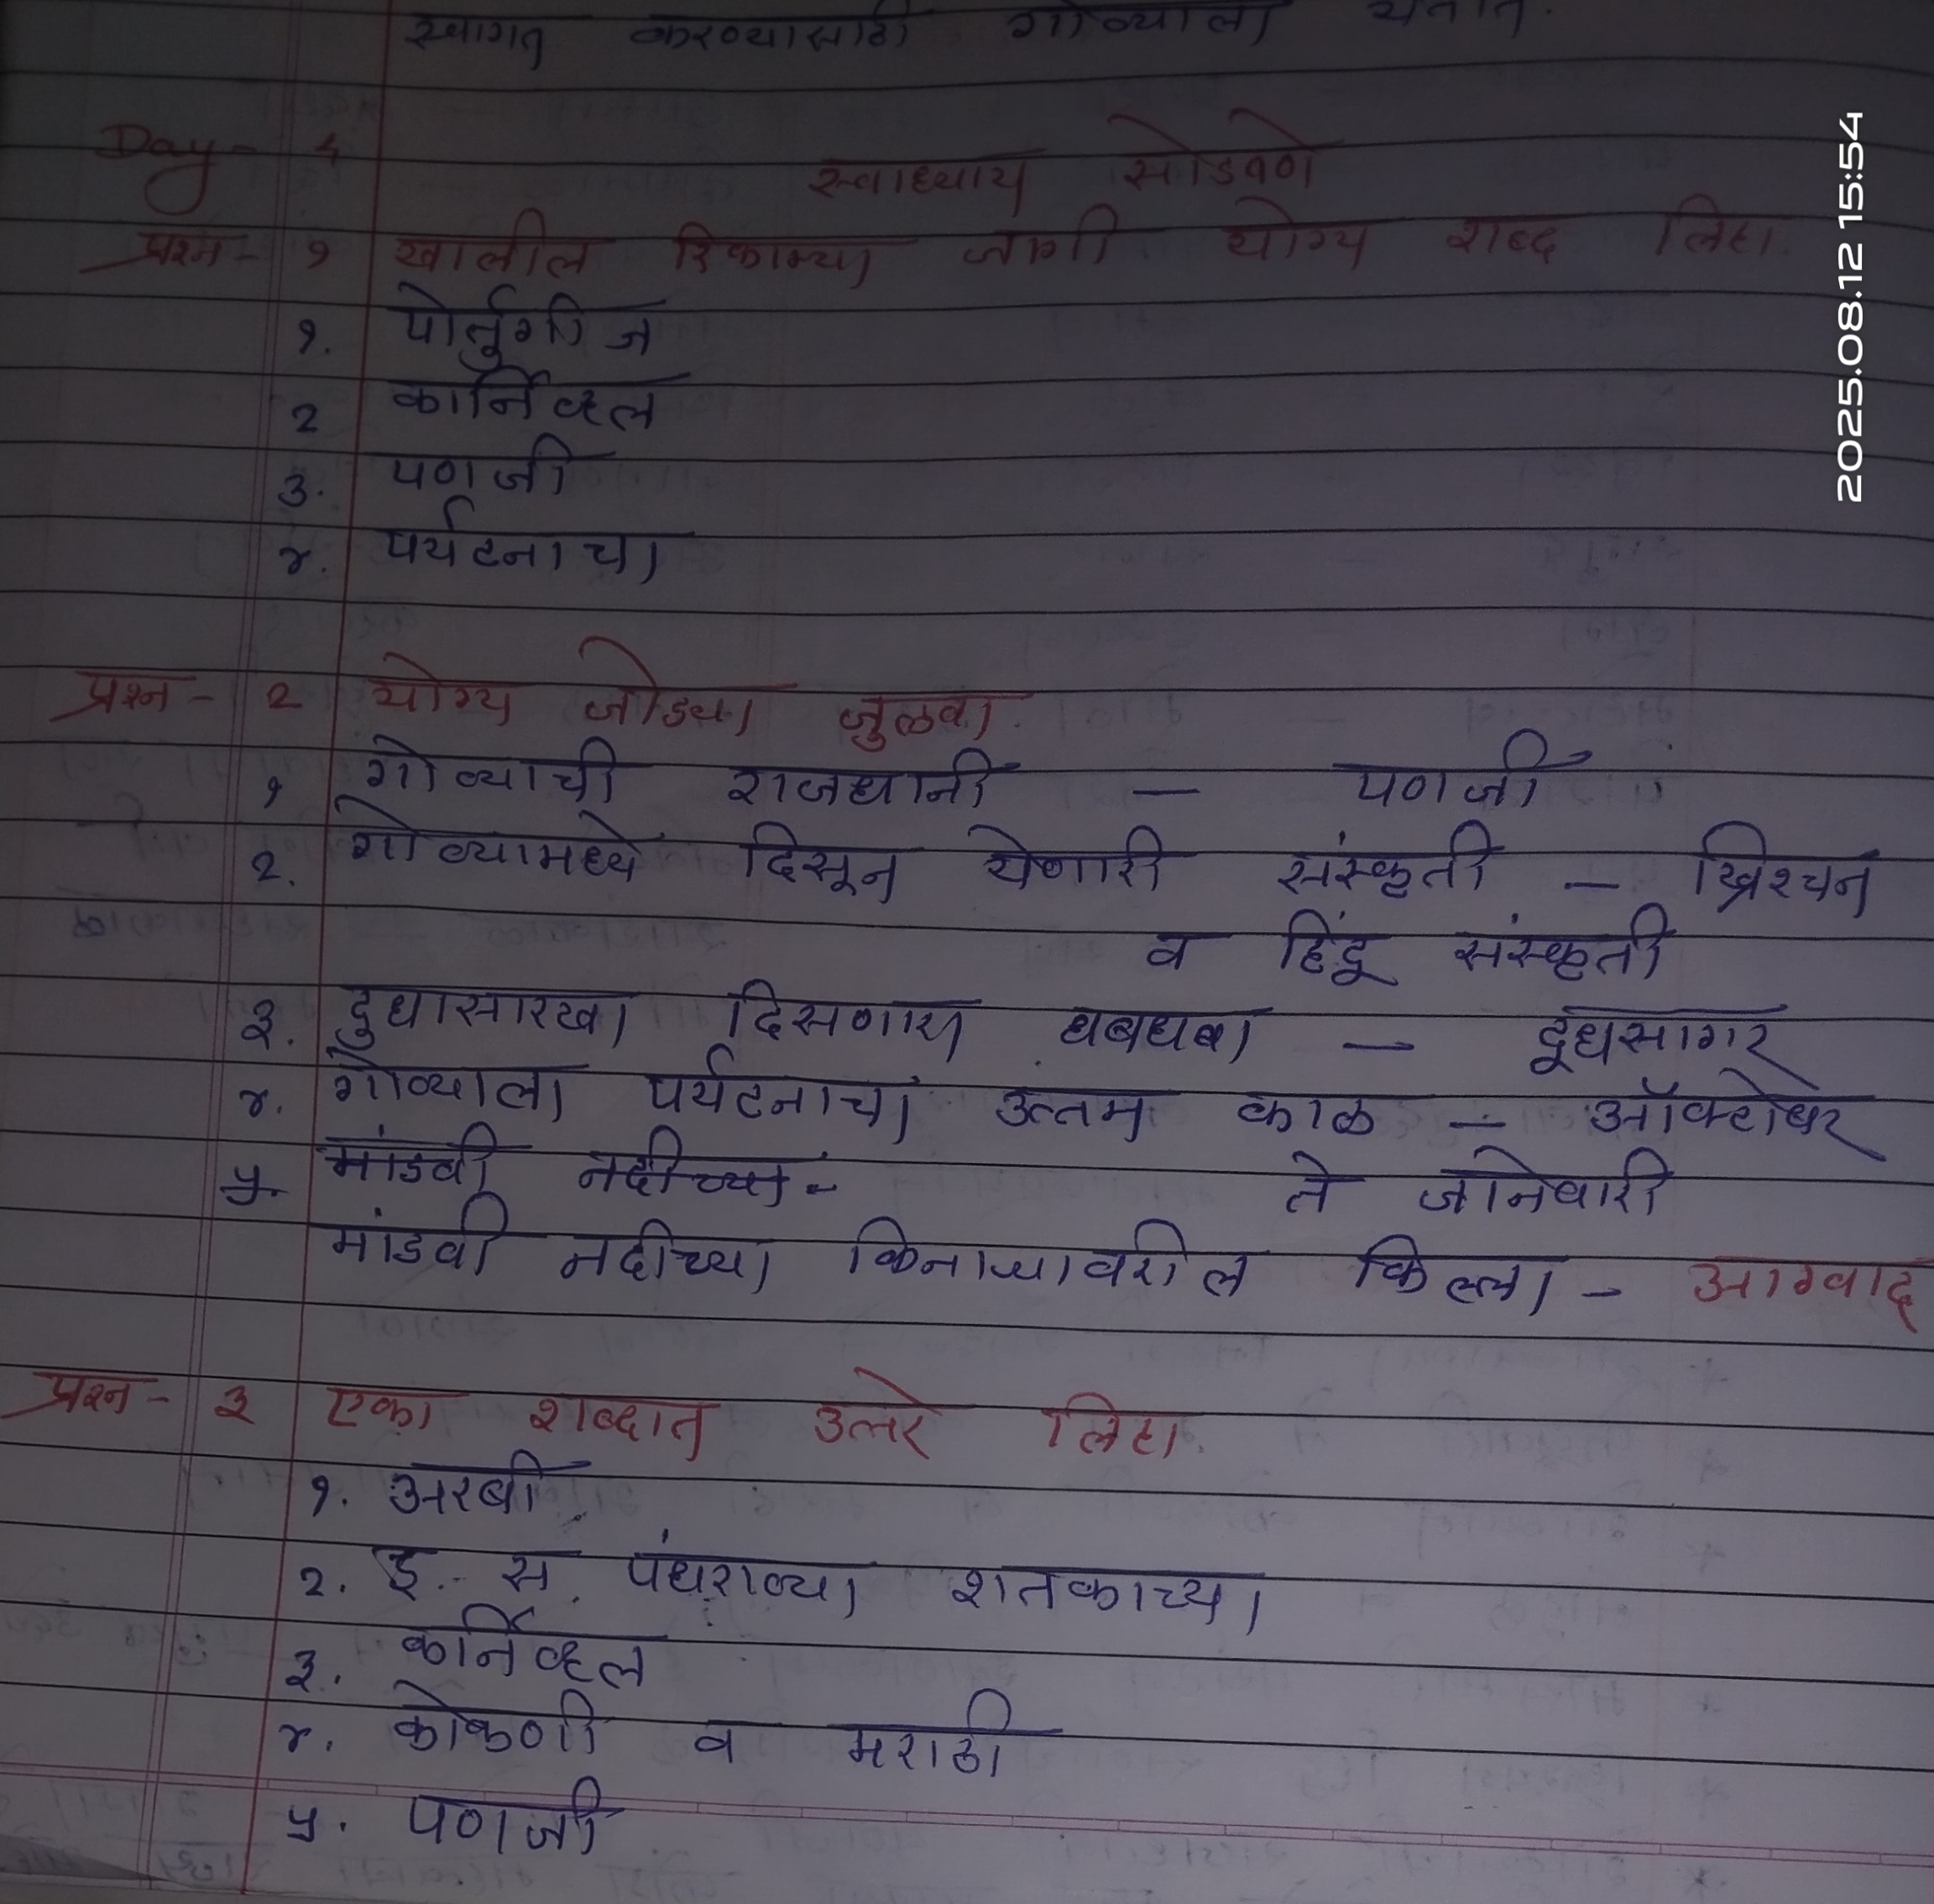 स्वागत करण्यासाठी गोव्याला येतात.
Day - 4
स्वाध्याय सोडवणे
प्रश्न - १ खालील रिकाम्या जागी योग्य शब्द लिहा.
१. पोर्तुगीज
२ कार्निव्हल
३. पणजी
४. पर्यटनाचा
प्रश्न - २ योग्य जोड्या जुळवा.
१ गोव्याची राजधानी — पणजी
२. गोव्यामध्ये दिसून येणारी संस्कृती — ख्रिश्चन
व हिंदू संस्कृती
३. दुधासारखा दिसणारा धबधबा — दूधसागर
४. गोव्याला पर्यटनाचा उत्तम काळ — ऑक्टोबर
५. मांडवी नदीच्या - ते जानेवारी
मांडवी नदीच्या किनाऱ्यावरील किल्ला - आग्वाद
प्रश्न - ३ एका शब्दात उत्तरे लिहा.
१. अरबी
२. इ. स. पंधराव्या शतकाच्या
३. कार्निव्हल
४. कोकणी व मराठी
५. पणजी
2025.08.12 15:54